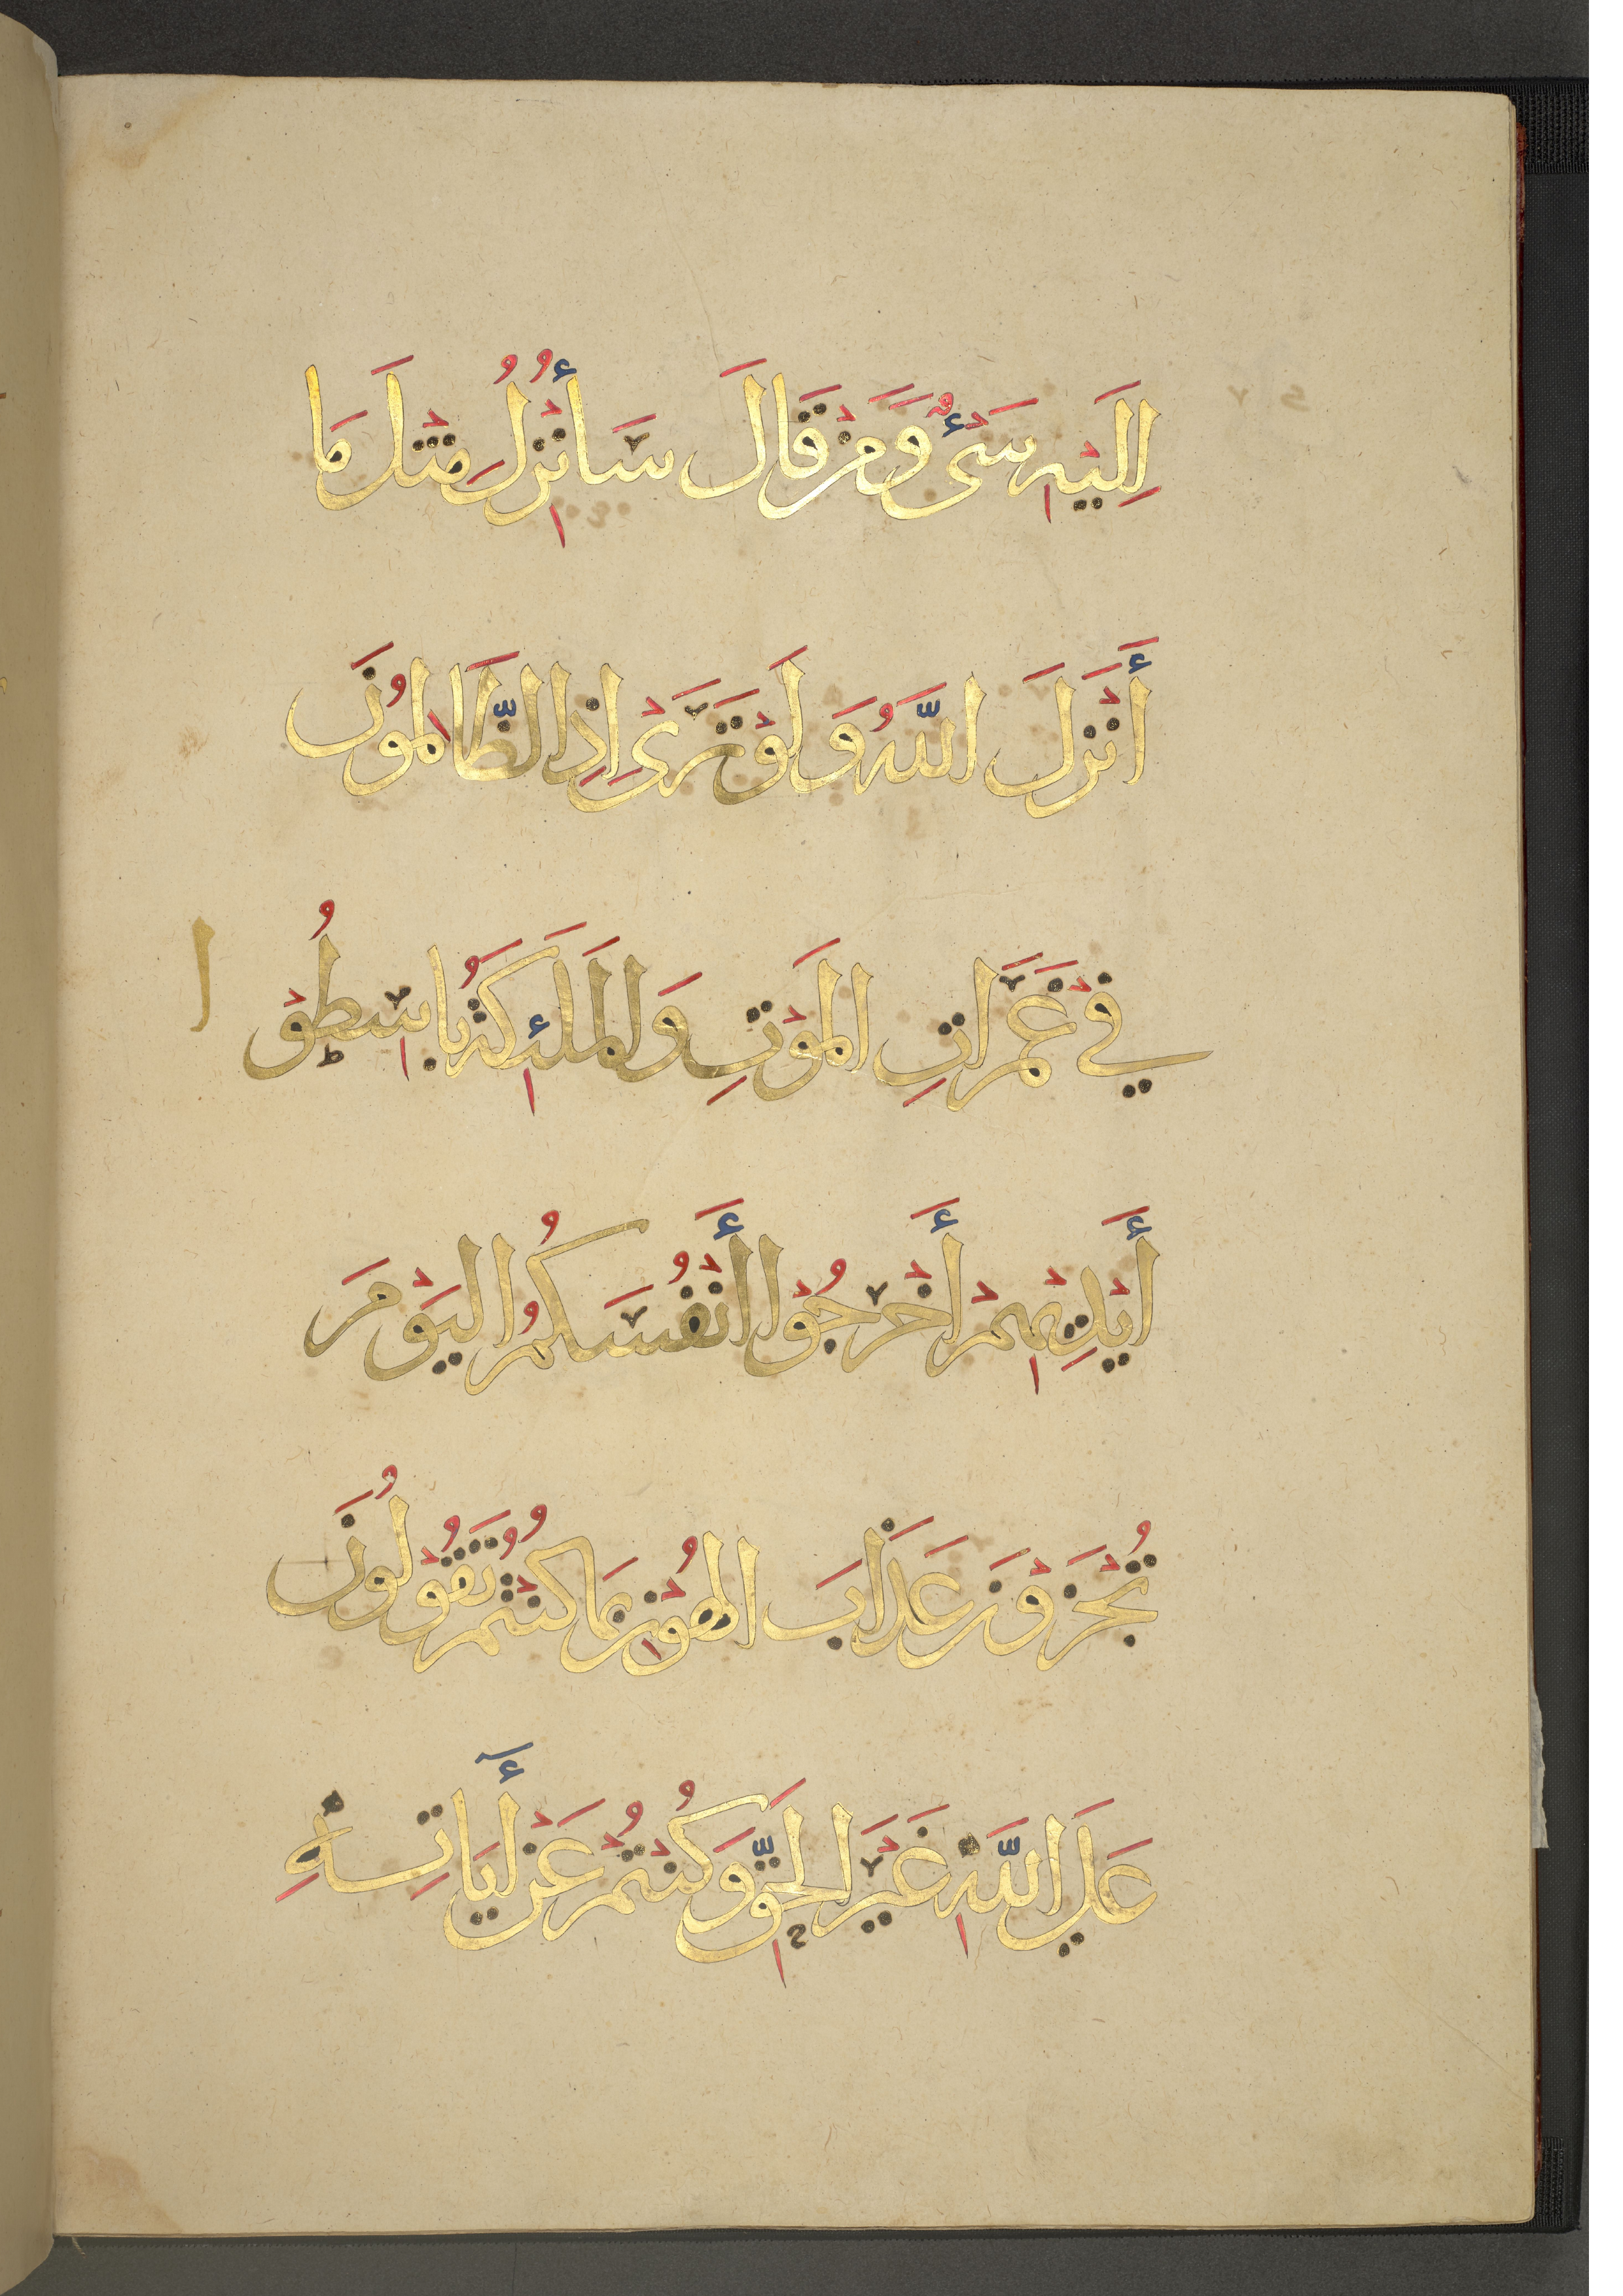 إِلَيْهِ شَيْءٌ وَمَنْ قَالَ سَأُنْزِلُ مِثْلَ مَا
أَنْزَلَ اللَّهُ وَلَوْ تَرَىٰ إِذِ الظَّالِمُونَ
فِي غَمَرَاتِ الْمَوْتِ وَالْمَلَئِكَةُ بَاسِطُوْ
ا
أَيْدِيهِمْ أَخْرِجُوْا أَنْفُسَكُمُ الْيَوْمَ
تُجْزَوْنَ عَذَابَ الْهُوْنِ بِمَا كُنْتُمْ تَقُوْلُونَ
عَلَي اللَّهِ غَيْرَ الْحَقِّ وَكُنْتُمْ عَنْ أٰيَاتِهِ